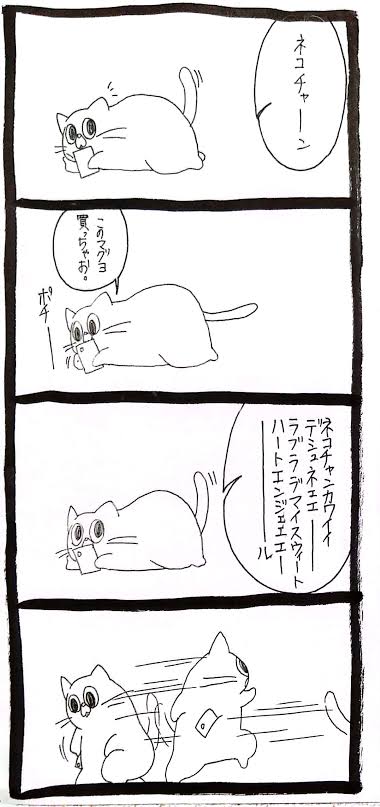 ネコチャーン
このマグヨ
買っちゃお。
ポチー
ネコチャンカワイイ
デシュネェェー
ラブラブマイスウィート
ハートエンジェェエー
ール